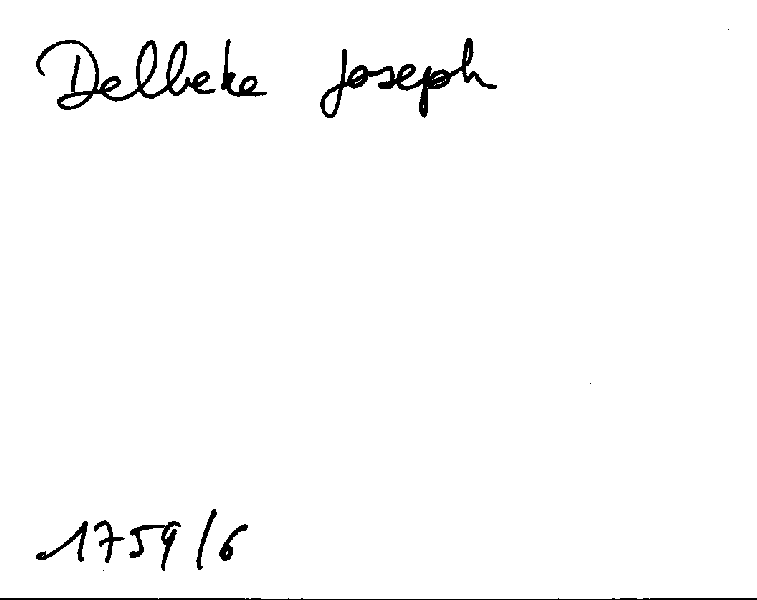 Delbeke Joseph
1759/6